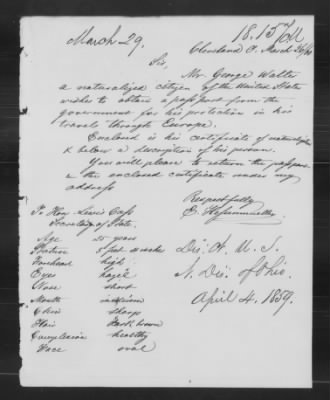 March 29.
18.157
Cleveland O. March 26/
Sir,
Mr. George Walter
a naturalized citizen of the United States
wishes to obtain a passport from the
government for his protection in his
travels through Europe.
Enclosed is his certificate of
& below a description of his person.
You will please to return the passport
& the enclosed certificate under my
address
Respectfully
E.
To Hon. Lewis Cass
Secretary of State.
Age years
Stature 5 feet inches
Forehead high
Eyes hazel
Nose short
Mouth medium
Chin sharp
Hair dark brown
Complexion healthy
Face oval
Dis. A. U. S.
N. Dis. of Ohio.
April 4. 1859.